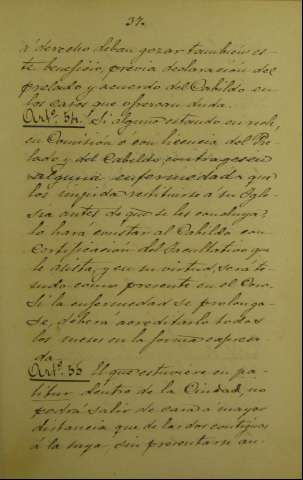 37.
á derecho deban gozar tambien es-
te beneficio, previa declaracion del
prelado y acuerdo del Cabildo en
los casos que ofrezcan duda.
Artº. 54. Si alguno estando en recle,
en Comisión ó con licencia del Pre-
lado y del Cabildo, contragese
alguna enfermedad que
los impida restituirse á su Igle-
sia antes de que se les concluya,
lo hará constar al Cabildo con
certificacion del facultativo que
le asista, y en su virtud, será te-
nido como presente en el Coro.
Si la enfermedad se prolonga-
se, deberá acreditarlo todos
los meses en la forma expresa-
da.
Artº. 55 El que estuviere en pa-
titur dentro de la Ciudad, no
podrá salir de casa á mayor
distancia que de las dos contiguas
á la suya, sin presentarse an-